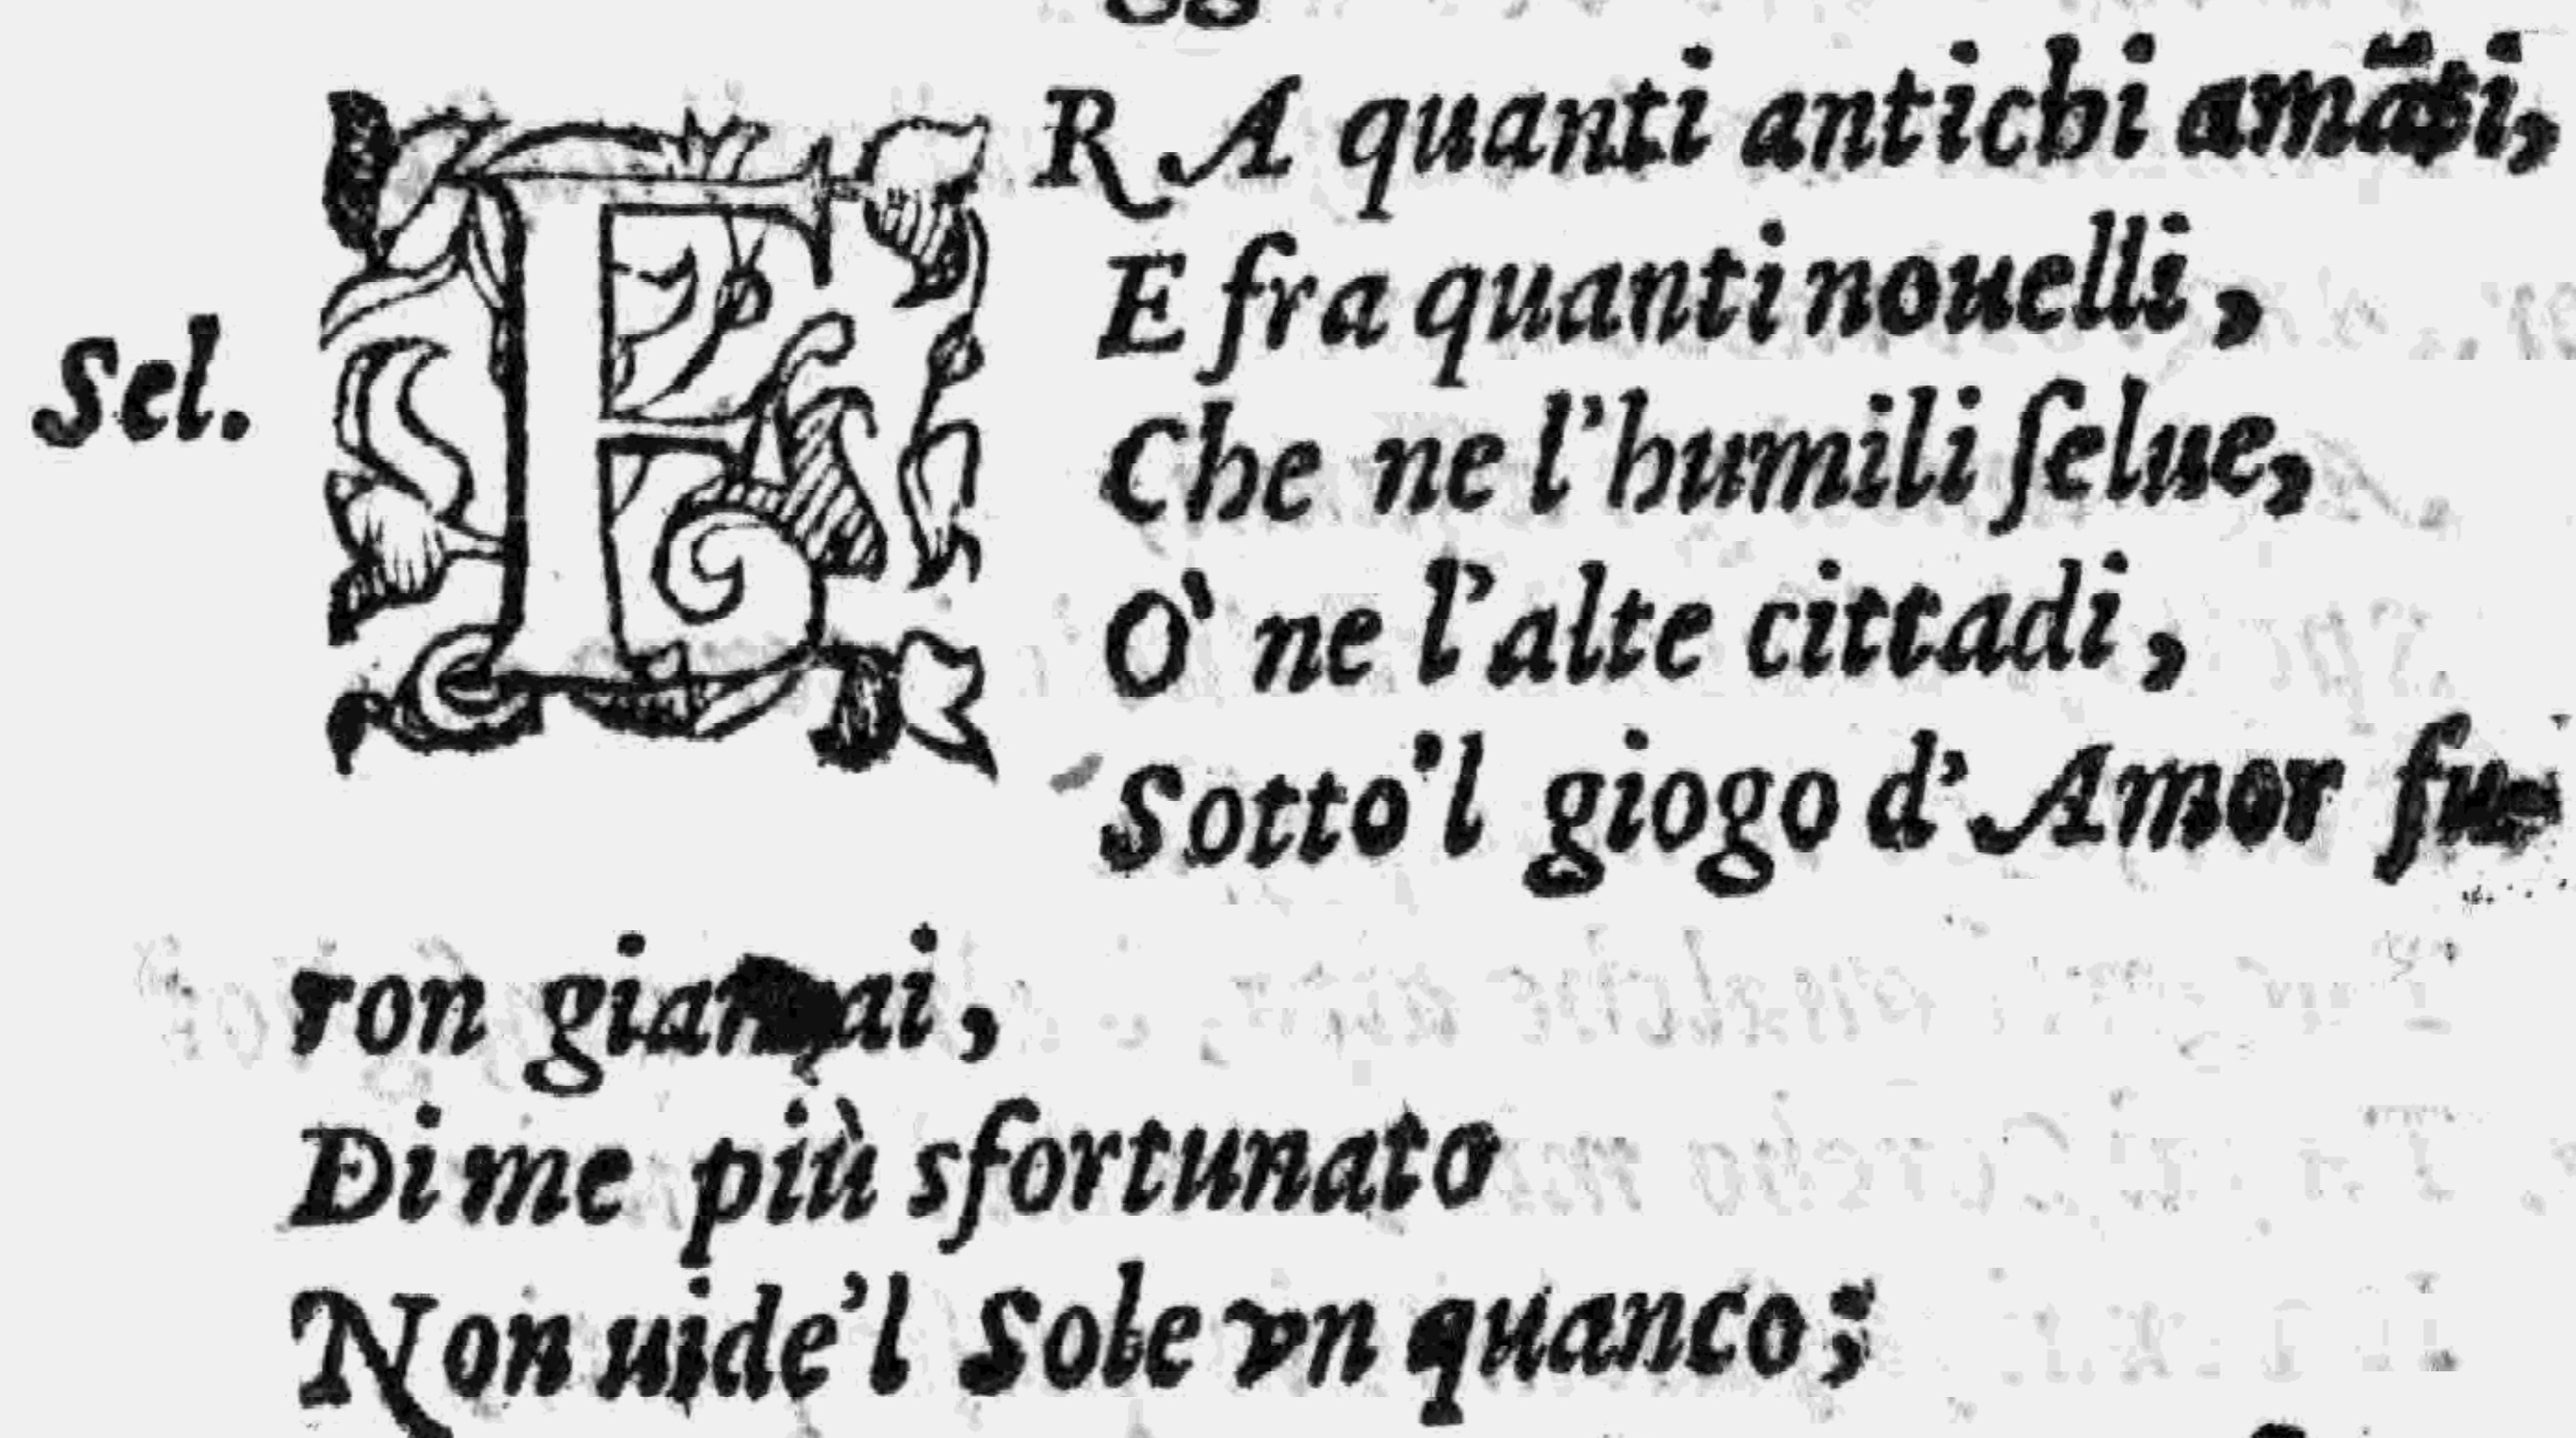 Sel. FRA quanti antichi amāti,
E fra quanti nouelli,
Che ne l'humili ſelue,
O' ne l'alte cittadi,
Sotto'l giogo d'Amor fu-
ron giamai,
Di me più sfortunato
Non uide'l Sole vn quanco;